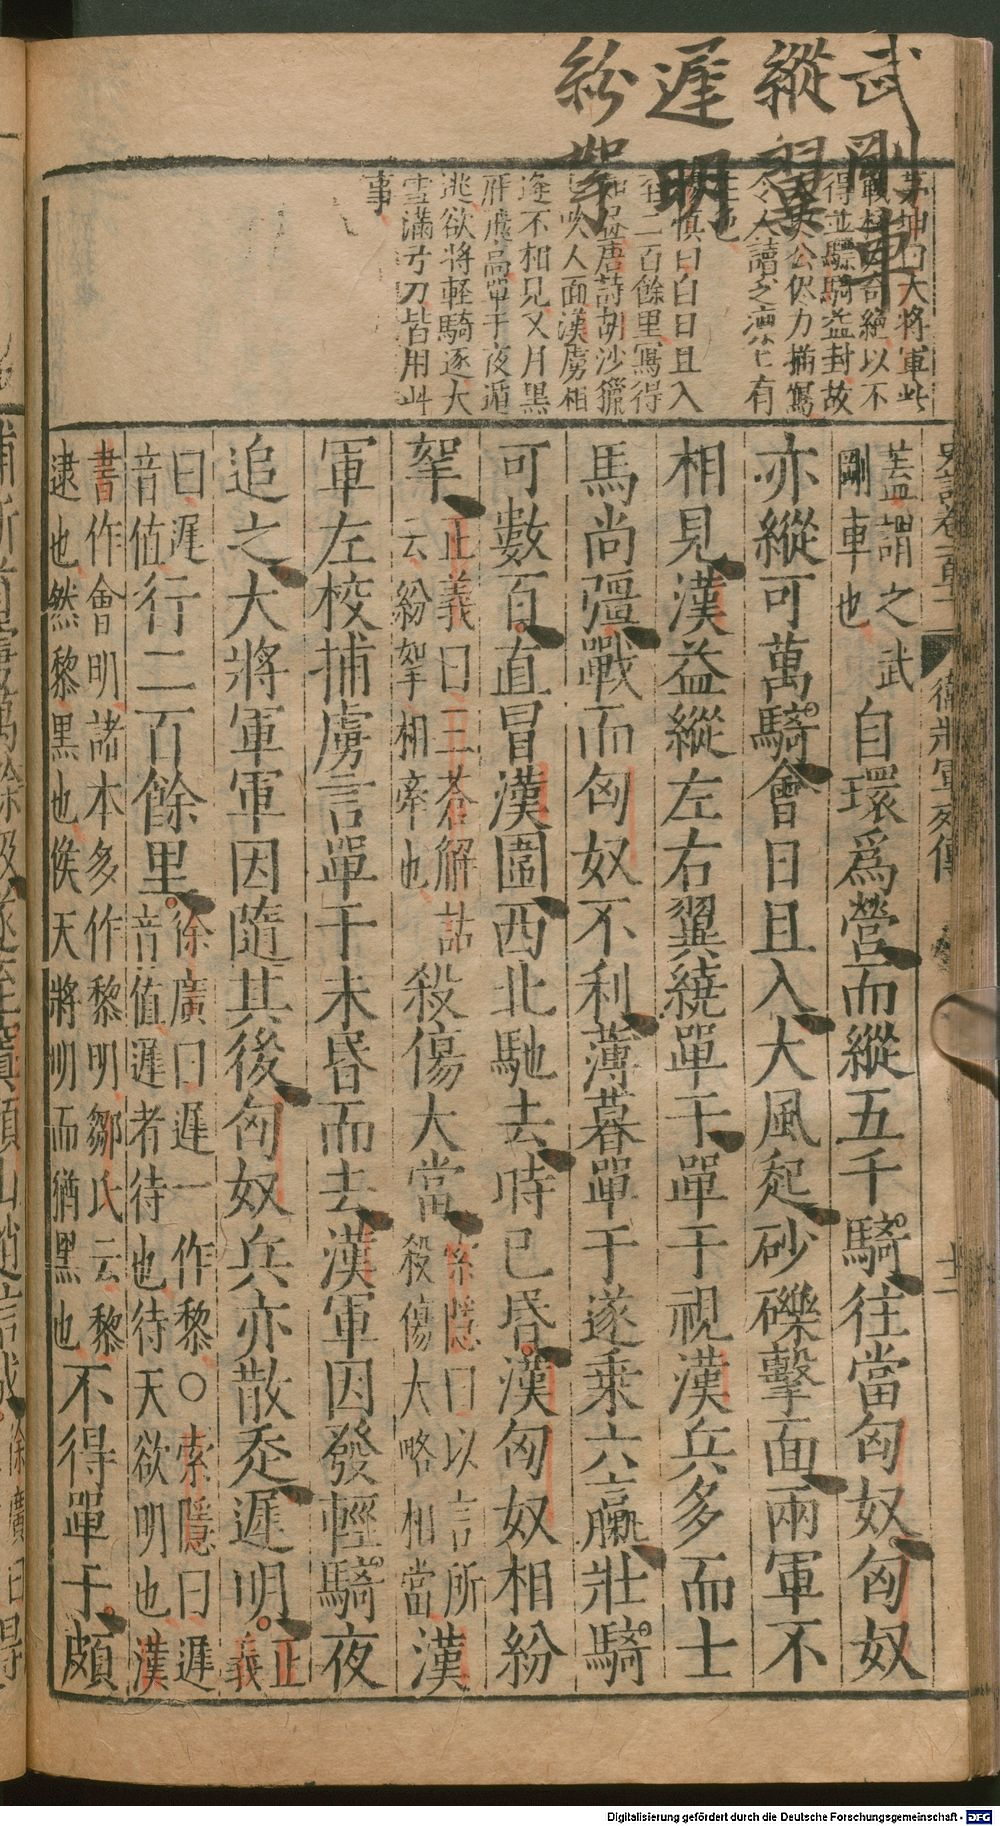 武剛車
縱翼
遲明
紛挐
茅坤曰大將軍此
戰極奇絶以不
得並驃騎益封故
太史公侭力描寫
令人讀之凛凛有
生色
楊慎曰白日且入
至二百餘里寫得
如畫唐詩胡沙獵
獵吹人面漢虜相
逢不相見又月黑
雁飛高單于夜遁
逃欲將輕騎逐大
雪滿弓刀皆用此
事
史記卷一百十一 衛將軍列傳 十一
蓋謂之武
剛車也
自環爲營而縱五千騎往當匈奴匈奴
亦縱可萬騎會日且入大風起砂礫擊面兩軍不
相見漢益縱左右翼繞單于單于視漢兵多而士
馬尚彊戰而匈奴不利薄暮單于遂乘六臝壯騎
可數百直冒漢圍西北馳去時已昏漢匈奴相紛
挐
正義曰三蒼解詁
云紛挐相牽也
殺傷大當
索隱曰以言所
殺傷大略相當
漢
軍左校捕虜言單于未昏而去漢軍因發輕騎夜
追之大將軍軍因隨其後匈奴兵亦散走遲明
正
義
曰遲
音值
行二百餘里
徐廣曰遲一作黎○索隱曰遲
音值遲者待也待天欲明也漢
書作會明諸本多作黎明鄒氏云黎
逮也然黎黑也候天將明而猶黑也
不得單于頗
捕斬首虜萬餘級遂至窴顏山趙信城
徐廣曰
Digitalisierung gefördert durch die Deutsche Forschungsgemeinschaft - DFG